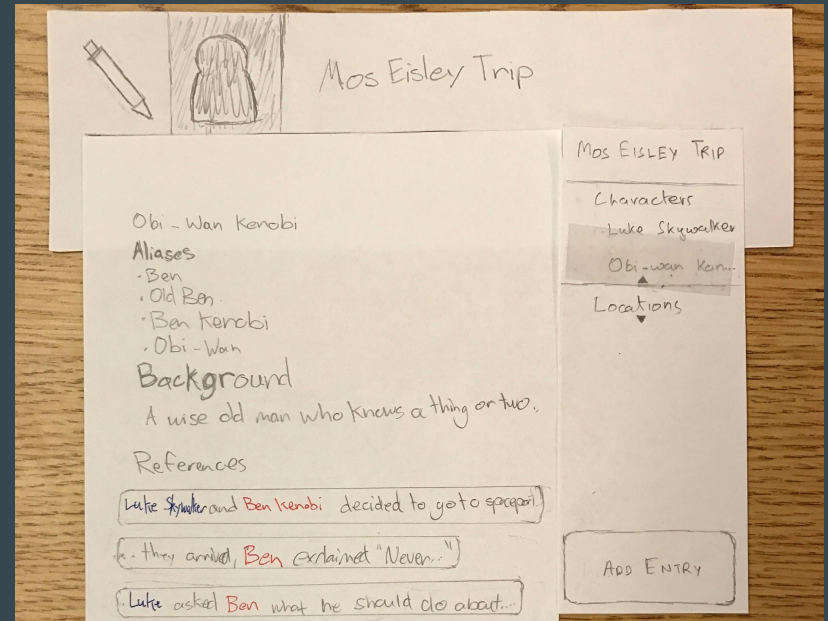 Mos Eisley Trip
Obi-Wan Kenobi
Aliases
· Ben
· Old Ben
· Ben Kenobi
· Obi-Wan
Background
A wise old man who knows a thing or two.
References
Luke Skywalker and Ben Kenobi decided to go to spaceport
... they arrived, Ben exclaimed "Never..."
Luke asked Ben what he should do about...
MOS EISLEY TRIP
Characters
Luke Skywalker
Obi-wan Ken...
Locations
ADD ENTRY